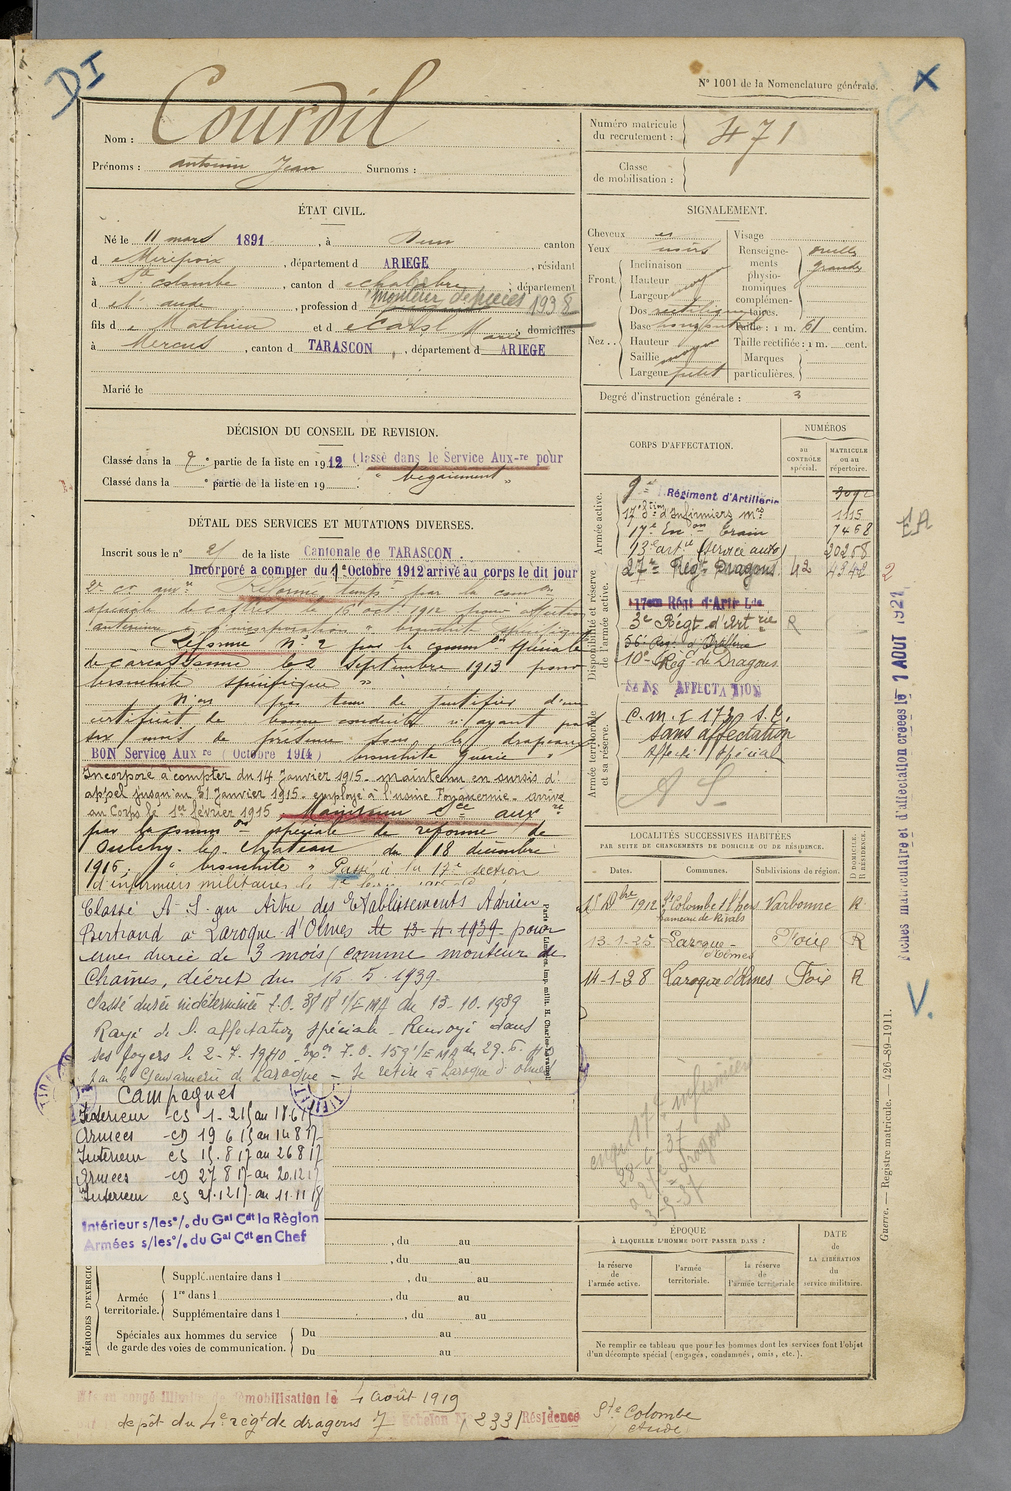 DI
X
N° 1001 de la Nomenclature générale.
Nom : Courdil
Prénoms : Antonin Jean Surnoms :
Numéro matricule du recrutement : 471
Classe de mobilisation :
ÉTAT CIVIL.
Né le 11 mars 1891, à Dun canton
d e Mirepoix, département d ARIEGE, résidant
à Ste Colombe, canton d e Chalabre, département
d e l'aude, profession d monteur de pièces 1938
fils d e Mathieu et d e Marie, domiciliés
à Mercus, canton d TARASCON, département d ARIEGE
Marié le
SIGNALEMENT.
Cheveux
Yeux noirs
Front. Inclinaison
Hauteur moy
Largeur
Nez.. Dos rectiligne
Base horizontal
Hauteur
Saillie moy
Largeur petit
Visage
Renseignements physionomiques complémentaires. oreilles grandes
Taille : 1 m. 61 centim.
Taille rectifiée : 1 m. cent.
Marques particulières.
Degré d'instruction générale : 3
DÉCISION DU CONSEIL DE REVISION.
Classé dans la 7e partie de la liste en 1912. Classé dans le Service Aux-re pour
Classé dans la ° partie de la liste en 19 . " bégaiement "
DÉTAIL DES SERVICES ET MUTATIONS DIVERSES.
Inscrit sous le n° 21 de la liste Cantonale de TARASCON.
Incorporé a compter du 1e Octobre 1912 arrivé au corps le dit jour
Réformé temp re par la com on
spéciale de castres le 16 oct 1912 pour affection
antérieure à l'incorporation " bronchite spécifique "
Réformé N° 2 par la comm on spéciale
de Carcassonne le 2 septembre 1913 pour
bronchite spécifique "
N'a pas tenu de justifier d'un
certificat de bonne conduite n'ayant pas
six mois de présence sous les drapeaux
BON Service Aux re (Octobre 1914) bronchite guérie "
Incorporé à compter du 14 Janvier 1915. maintenu en sursis d'
appel jusqu'au 31 Janvier 1915. employé à l'usine arrivé
au Corps le 1er février 1915. Maintenu Sce aux re
par la comm on spéciale de réforme de
le Chateau du 18 décembre
1915, " bronchite " Passé à la 17e section
d'infirmiers militaires le
Classé A.S. au titre des Etablissements Adrien
Bertrand à Laroque-d'Olmes le 13-4-1939 pour
une durée de 3 mois (comme monteur de
Chaînes, décret du 16.5.1939.
Classé durée indéterminée f.O. 3818 1/EMA du 13-10.1939
Rayé de l'affectation spéciale - Renvoyé dans
ses foyers le 2-7-1940 - 1/EMA du 29.6.40
par la Gendarmerie de Laroque - Se retire à Laroque d'Olmes
Paris Limoges, imp. milit. H. Charles-Lavauzelle
Campagnes
Intérieur - CS 1-2 15 au 18 6 15
Armées - CD 19 6 15 au 14 8 17
Intérieur CS 15.8 17 au 26 8 17
Armées - CD 27 8 17 au 20.12 17
Intérieur CS 21.12 17 au 11.11 18
Intérieur s/les °/. du Gal Cdt la Région
Armées s/les °/. du Gal Cdt en Chef
CORPS D'AFFECTATION.
NUMÉROS
au CONTRÔLE spécial.
MATRICULE ou au répertoire.
Armée active.
9e Régiment d'Artillerie
17e Son d'Infirmiers mres 1115
17e Esc on Train 7468
13e artie (service auto) 20258
27e Régt Dragons 42 4342 2
Disponibilité et réserve de l'armée active.
17eme Régt d'Artie Lde
3e Régt d'Art rie R
56e Régt d'Artillerie
10e Régt de Dragons
SANS AFFECTATION
Armée territoriale et sa réserve.
C.m.I 173 S.E.
Sans affectation
Affecté Spécial
A S
EA
Fiches matriculaire et d'affectation créées le 1 AOUT 1921
V.
LOCALITÉS SUCCESSIVES HABITÉES
PAR SUITE DE CHANGEMENTS DE DOMICILE OU DE RÉSIDENCE.
Dates. Communes. Subdivisions de région. D DOMICILE. R RÉSIDENCE.
15 Dbre 1912 Ste Colombe s/l'hers hameau de Rivals Narbonne R
13-1-25 Laroque-d'Olmes Foix R
14-1-38 Laroque d'Olmes Foix R
17e infirmiers
28-6-37
Dragons
3-5-37
Guerre. — Registre matricule. — 426-89-1911.
PÉRIODES D'EXERCICE
, du au
, du au
Supplémentaire dans l , du au
Armée territoriale. 1re dans l , du au
Supplémentaire dans l , du au
Spéciales aux hommes du service de garde des voies de communication. Du au
Du au
ÉPOQUE
À LAQUELLE L'HOMME DOIT PASSER DANS :
la réserve de l'armée active.
l'armée territoriale.
la réserve de l'armée territoriale
DATE de LA LIBÉRATION du service militaire.
Ne remplir ce tableau que pour les hommes dont les services font l'objet
d'un décompte spécial (engagés, condamnés, omis, etc.).
Mis en congé illimité de démobilisation le 4 Août 1919
depôt du 4e régt de dragons 7 Echelon N° 2331 Résidence Ste Colombe
Aude